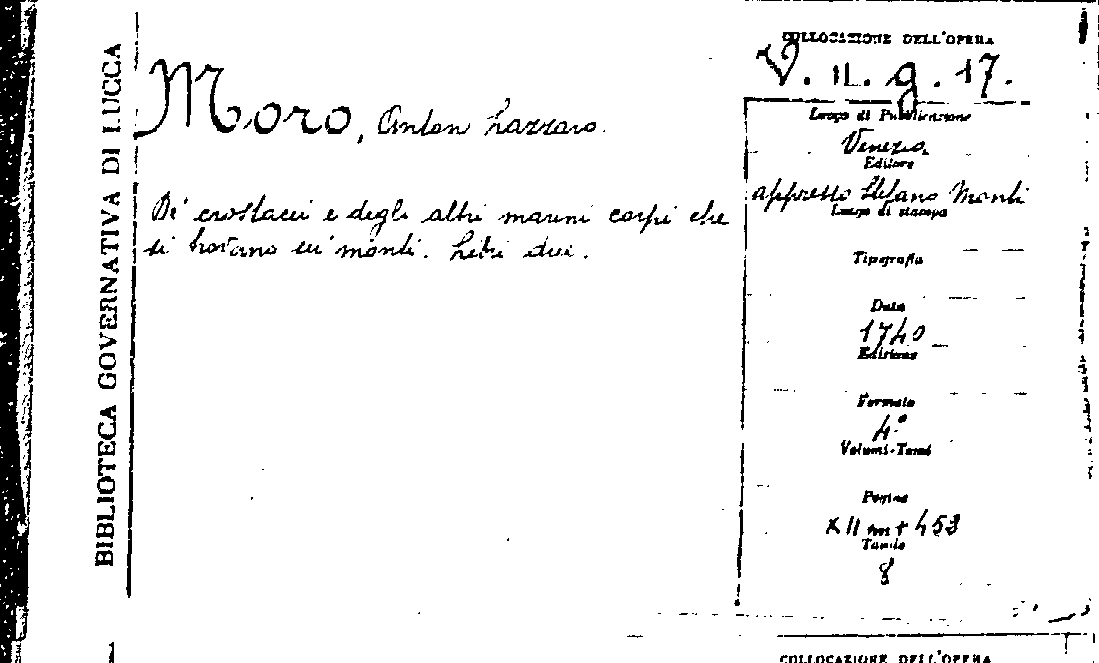 BIBLIOTECA GOVERNATIVA DI LUCCA
Moro, Anton Lazzaro.
De' crostacei e degli altri marini corpi che
si trovano su' monti. Libri due.
COLLOCAZIONE DELL'OPERA
V. II. g. 17.
Luogo di Pubblicazione
Venezia
Editore
appresso Stefano Monti
Luogo di stampa
Tipografia
Data
1740
Edizione
Formato
4°
Volumi-Tomi
Pagine
XII + 453
Tavole
8
COLLOCAZIONE DELL'OPERA